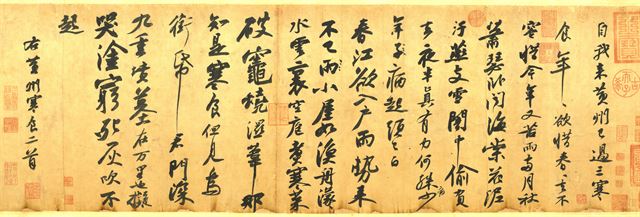 自我來黃州已過三寒
食年〻欲惜春〻去不
容惜今年又苦雨兩月秋
蕭瑟卧聞海棠花泥
汙燕支雪闇中偷負
去夜半真有力何殊少
年子病起頭已白
春江欲入户雨勢來
不已雨小屋如漁舟濛〻
水雲裏空庖煮寒菜
破竈燒濕葦那
知是寒食但見烏
銜帋君門深
九重墳墓在万里也擬
哭塗窮死灰吹不
起
右黃州寒食二首